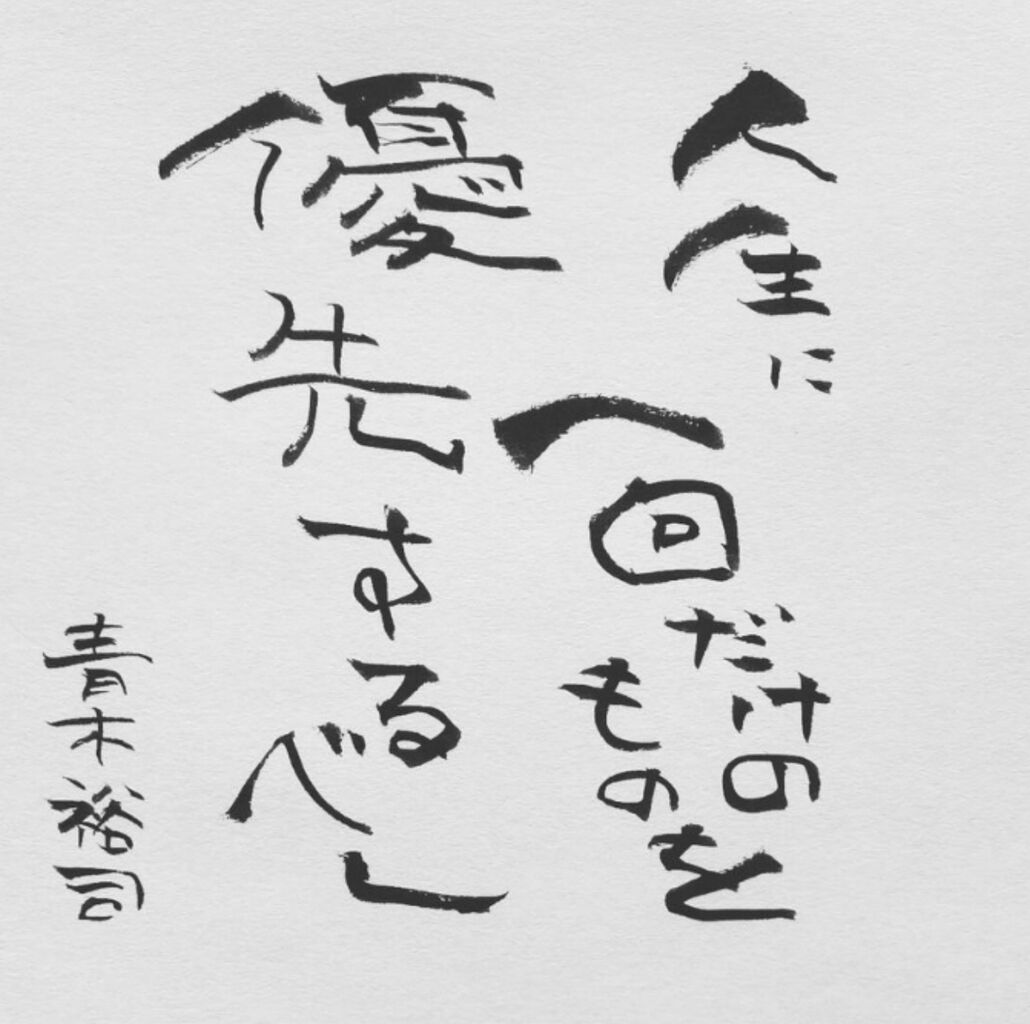 人生に
一回だけの
ものを
優先するべし
青木裕司